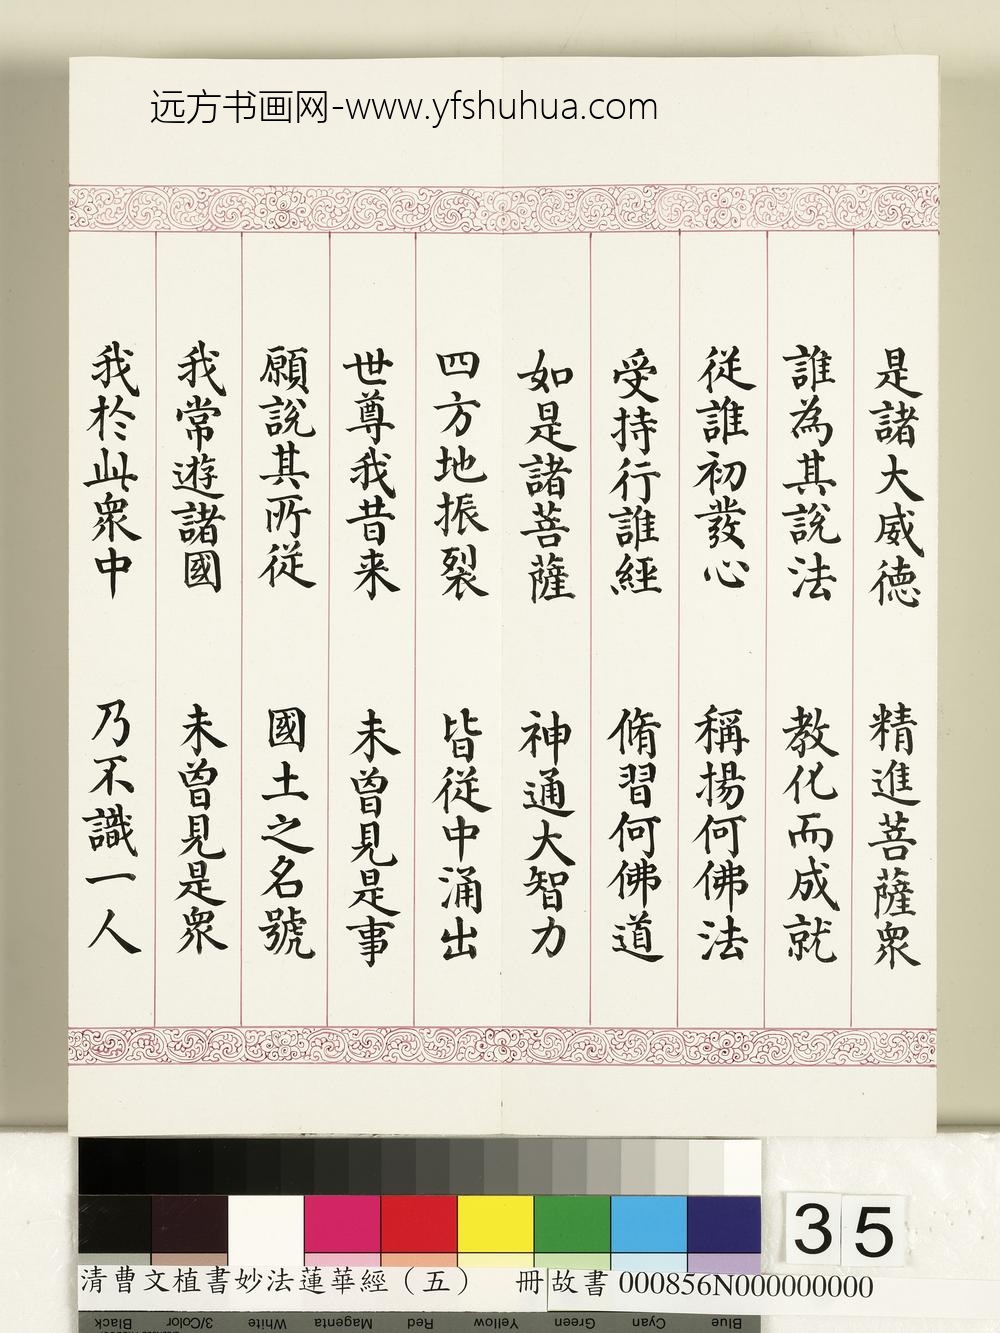 远方书画网-www.yfshuhua.com
是諸大威德 精進菩薩衆
誰為其說法 教化而成就
從誰初發心 稱揚何佛法
受持行誰經 脩習何佛道
如是諸菩薩 神通大智力
四方地振裂 皆從中涌出
世尊我昔来 未曾見是事
願說其所從 國土之名號
我常遊諸國 未曾見是衆
我於此衆中 乃不識一人
35
清曹文植書妙法蓮華經（五） 冊 故書 000856N000000000
Black 3/Color White Magenta Red Yellow Green Cyan Blue